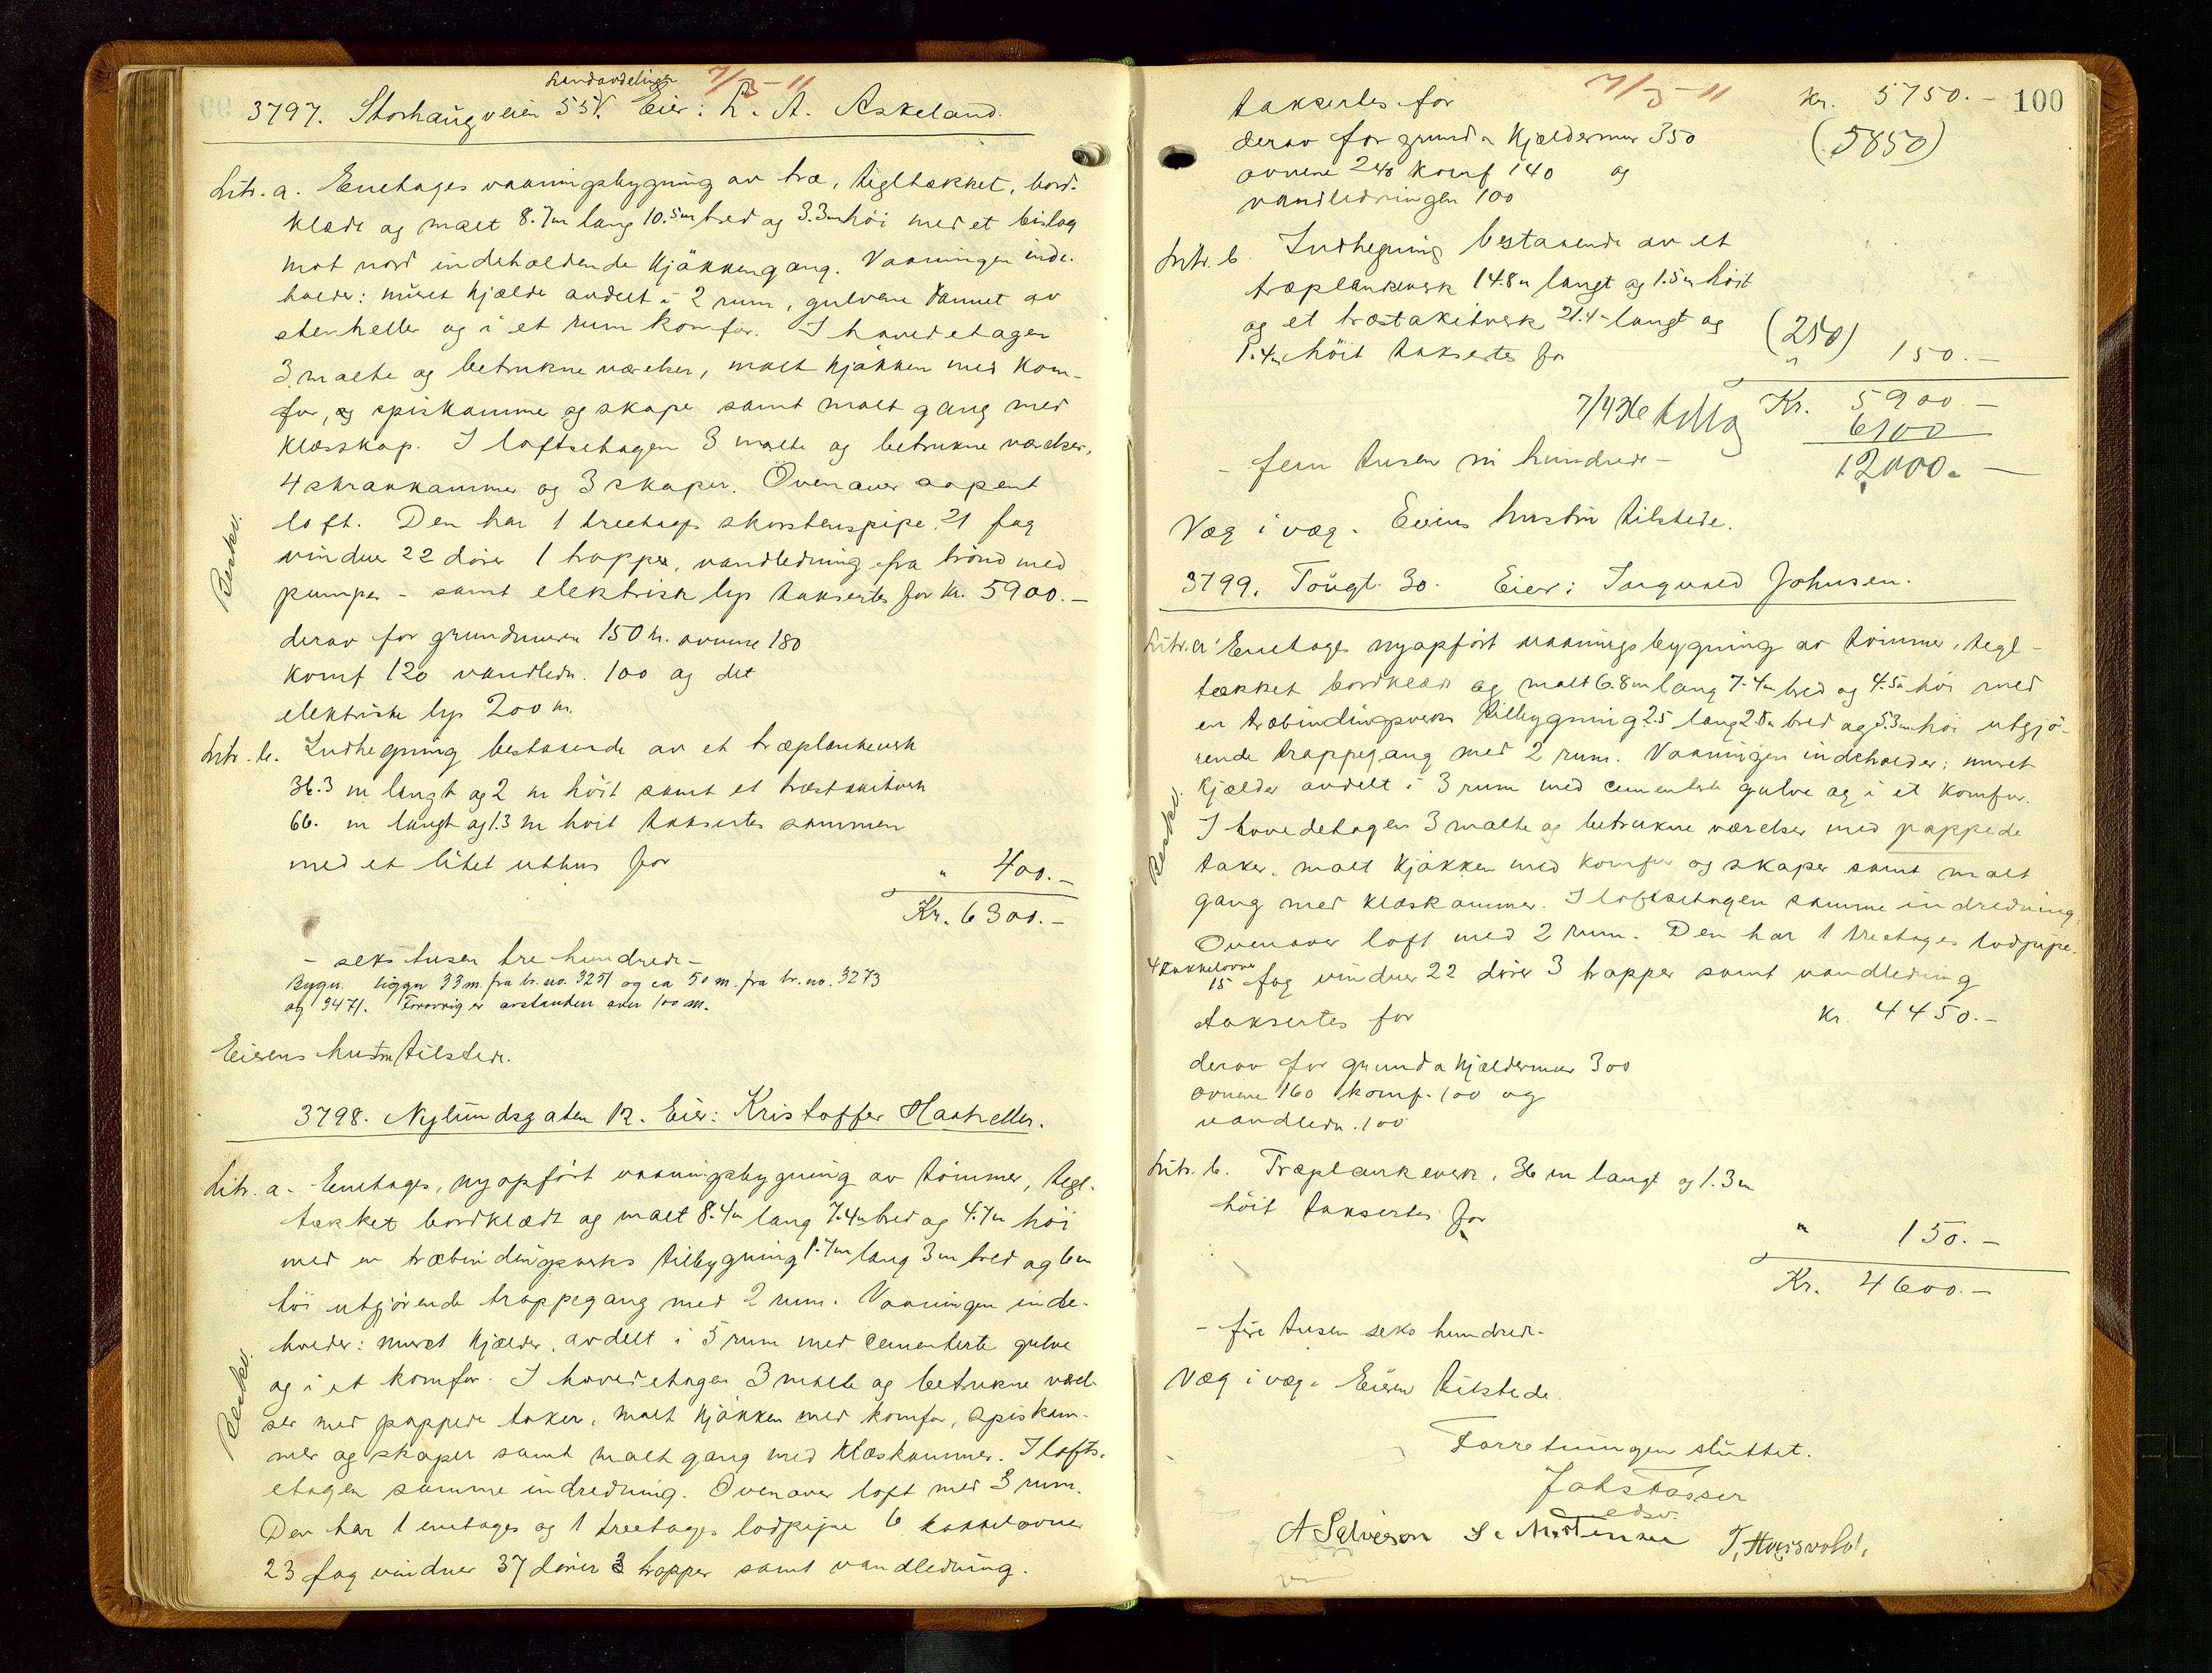 Landavdelingen 7/3-11
3797. Storhaugveien 55V. Eier: L. A. Askeland.
Litr. a. Enetages vaaningsbygning av træ, tegltækket, bord-
klædt og malt 8.7m lang 10.5m bred og 3.3m høi med et bislag
mot nord indeholdende kjøkkengang. Vaaningen inde-
holder: muret kjelder avdelt i 2 rum, gulvene dannet av
stenheller og i et rum komfur. I hovedetagen
3 malte og betrukne værelser, malt kjøkken med kom-
fur, og spiskammer og skape samt malt gang med
klæsskap. I loftsetagen 3 malte og betrukne værelser,
4 skraakammer og 3 skaper. Ovenover aapent
loft. Den har 1 treetages skorstenspipe. 21 fag
vinduer 22 dører 1 trapper, vandledning fra brønd med
pumper - samt elektrisk lys taksertes for kr. 5900.-
Beskv.
derav for grundmuren 150 kr. ovnene 180
komf 120 vandledn. 100 og det
elektriske lys 200 kr.
Litr. b. Indhegning bestaaende av et træplankeverk
36.3 m langt og 2 m høit samt et træstakitverk
66. m langt og 1.3 m høit taksertes sammen
med et litet uthus for " 400.-
Kr. 6300.-
- seks tusen tre hundrede -
Bygn. ligger 33 m. fra br. no. 3251 og ca 50 m. fra br. no. 3273
og 3471. Forøvrig er avstanden over 100 m.
Eierens hustru tilstede.
3798. Nylundsgaten 12. Eier: Kristoffer
Litr. a. Enetages, nyopført vaaningsbygning av tømmer, tegl-
tækket bordklædt og malt 8.4m lang 7.4m bred og 4.7m høi
med en træbindingsverks tilbygning 1.7m lang 3m bred og 6m
høi utgjørende trappegang med 2 rum. Vaaningen inde-
holder: muret kjælder, avdelt i 5 rum med cementerte gulve
og i et komfur. I hovedetagen 3 malte og betrukne værel-
ser med pappede taker, malt kjøkken med komfur, spiskam-
mer og skaper samt malt gang med klæskammer. I lofts-
etagen samme indredning. Ovenover loft med 3 rum.
Den har 1 enetages og 1 treetages lodpipe 6 kakkelovner
23 fag vinduer 37 dører 3 trapper samt vandledning.
Beskv.
7/3-11 100
taksertes for Kr. 5750.-
derav for grund a kjældermur 350 (5850)
ovnene 240 komf 140 og
vandledningen 100
Litr. b. Indhegning bestaaende av et
træplankeverk 14.8m langt og 1.5m høit
og et træstakitverk 21.4m langt og (250)
1.4m høit taksertes for " 150.-
7/4 Kr. 5900.-
6100
- fem tusen ni hundrede - 12000.-
Væg i væg. Eiens hustru tilstede.
3799. Tougt. 30. Eier: Ingvald Johnsen.
Litr. a. Enetages nyopført vaaningsbygning av tømmer, tegl-
tækket bordklædt og malt 6.8m lang 7.4m bred og 4.5m høi med
en træbindingsverks tilbygning 2.5 lang 2.8m bred og 5.3m høi utgjø-
rende trappegang med 2 rum. Vaaningen indeholder: muret
kjælder avdelt i 3 rum med cementerte gulve og i et komfur.
I hovedetagen 3 malte og betrukne værelser med pappede
taker, malt kjøkken med komfur og skaper samt malt
gang med klæskammer. I loftsetagen samme indredning.
Ovenover loft med 2 rum. Den har 1 treetages lodpipe.
4 kakkelovner
15 fag vinduer 22 dører 3 trapper samt vandledning
taksertes for Kr. 4450.-
Beskv.
derav for grund a kjældermur 300
ovnene 160 komf. 100 og
vandledn. 100
Litr. b. Træplankeverk, 36 m langt og 1.3m
høit taksertes for " 150.-
Kr. 4600.-
- fire tusen seks hundrede-
Væg i væg. Eieren tilstede.
Forretningen sluttet.
edsv.
A Salveson